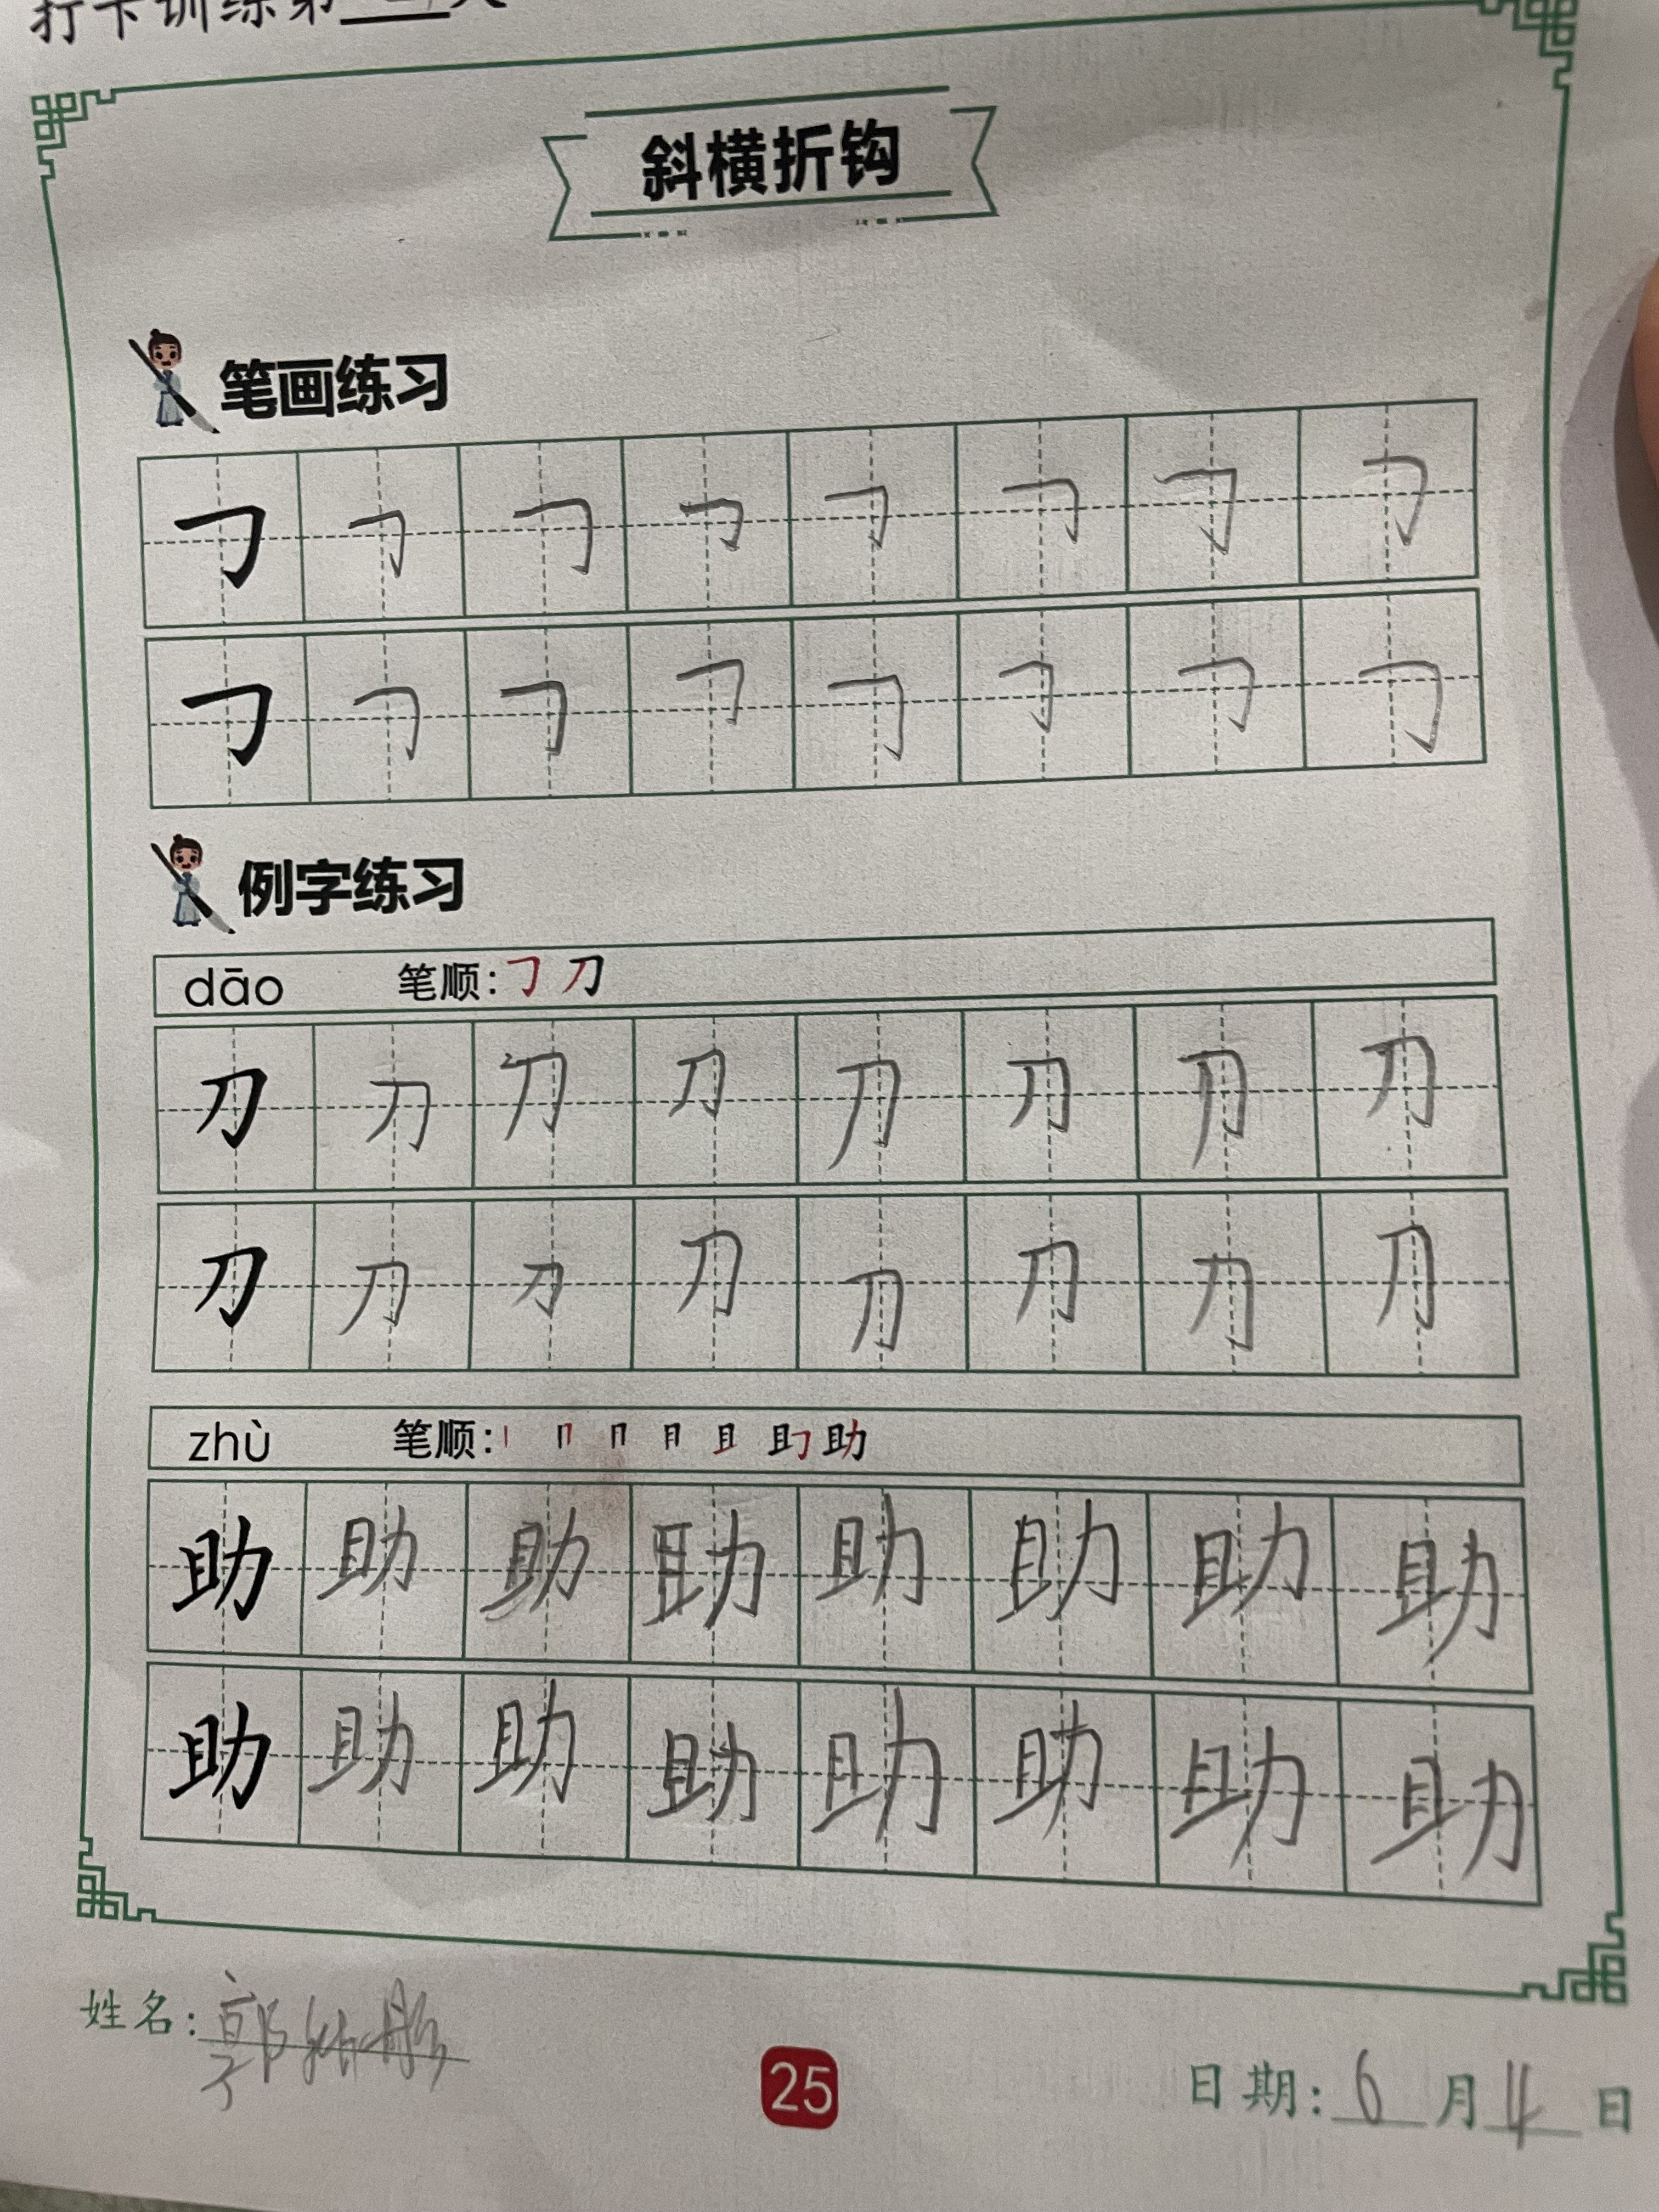 打卡训练第
斜横折钩
笔画练习
㇆ ㇆ ㇆ ㇆ ㇆ ㇆ ㇆ ㇆
㇆ ㇆ ㇆ ㇆ ㇆ ㇆ ㇆ ㇆
例字练习
dāo 笔顺: ㇆ 刀
刀 刀 刀 刀 刀 刀 刀 刀
刀 刀 刀 刀 刀 刀 刀 刀
zhù 笔顺: 丨 冂 月 且 助
助 助 助 助 助 助 助 助
助 助 助 助 助 助 助 助
姓名: 郭
25
日期: 6 月 4 日